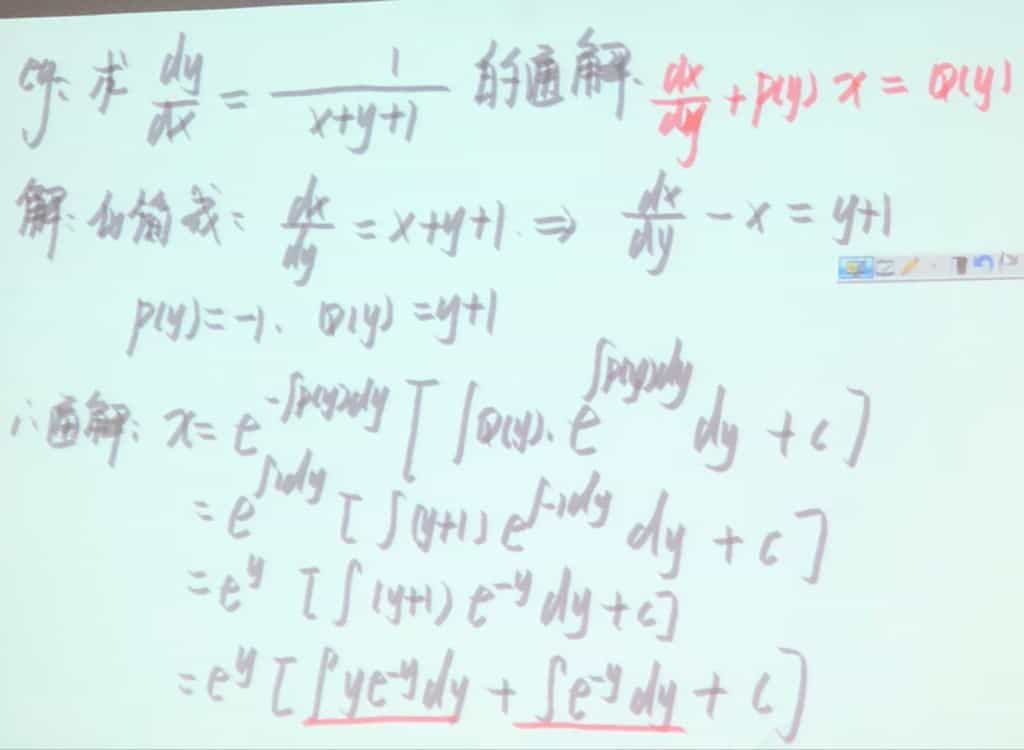 eg: 求 dy/dx = 1/(x+y+1) 的通解. dx/dy + p(y) x = Q(y)
解: 伯努利式: dx/dy = x+y+1. ⇒ dx/dy - x = y+1
p(y) = -1. Q(y) = y+1
∴通解: x = e^{-∫p(y)dy} [ ∫Q(y)· e^{∫p(y)dy} dy + c ]
= e^{∫1dy} [ ∫(y+1) e^{∫-1dy} dy + c ]
= e^y [ ∫(y+1) e^{-y} dy + c ]
= e^y [ ∫ye^{-y}dy + ∫e^{-y}dy + c ]